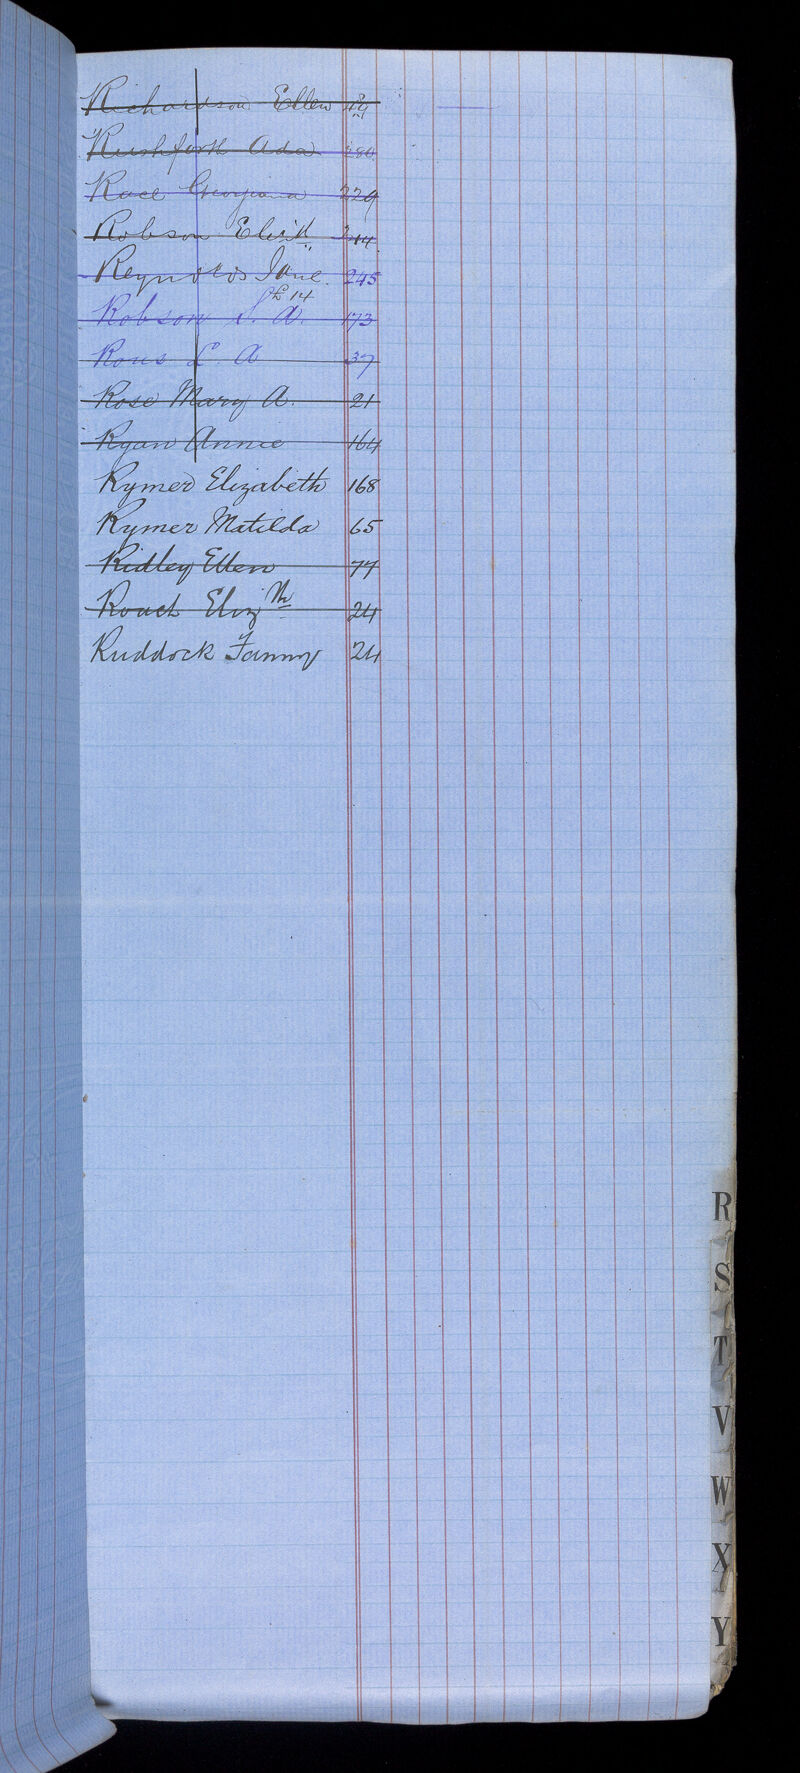 Richardson Ellen
Rushforth Ada 280
Race Georgiana 229
Robson Elizth
Reynolds Jane 245
£14
Robson S. A. 173
Rous L. A 37
Rose Mary A. 21
Ryan Annie 164
Rymer Elizabeth 168
Rymer Matilda 65
Ridley Ellen 77
Roach Eliz 24
Ruddock Fanny 24
R
S
T
V
W
X
Y